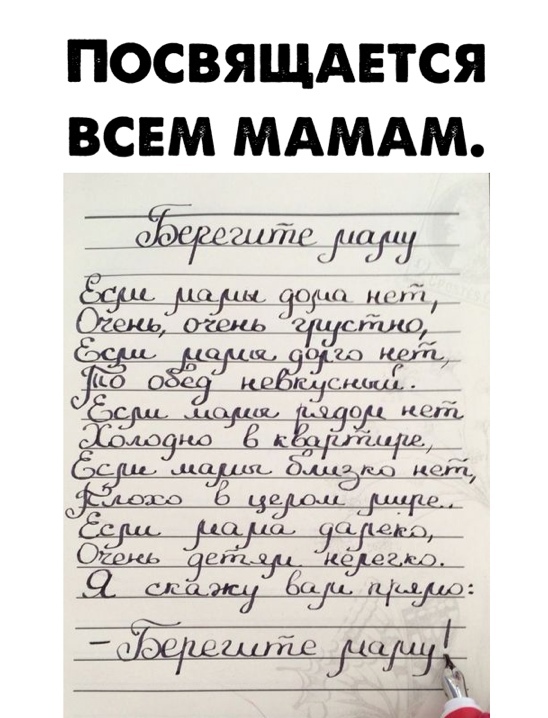 Посвящается
всем мамам.
Берегите маму
Если мамы дома нет,
Очень, очень грустно,
Если мамы долго нет,
То обед невкусный.
Если мамы рядом нет
Холодно в квартире,
Если мамы близко нет,
Плохо в целом мире..
Если мама далеко,
Очень детям нелегко.
Я скажу вам прямо:
- Берегите маму!